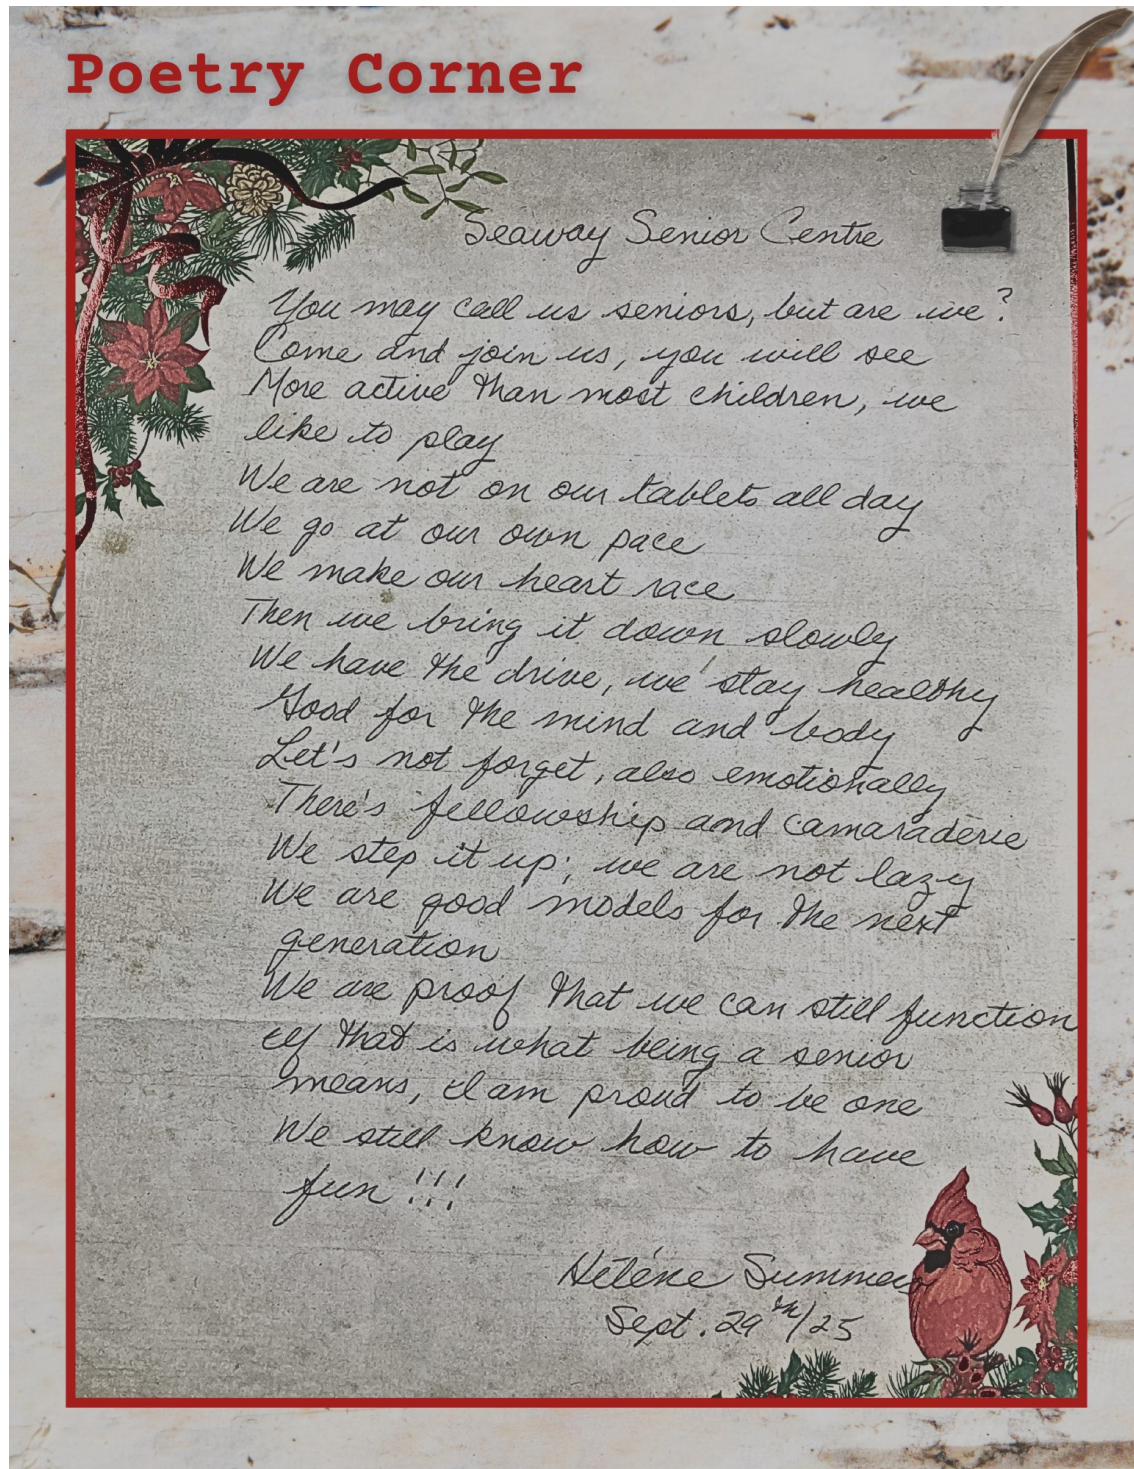 Poetry Corner
Seaway Senior Centre
You may call us seniors, but are we?
Come and join us, you will see
More active than most children, we
like to play
We are not on our tablets all day
We go at our own pace
We make our heart race
Then we bring it down slowly
We have the drive, we stay healthy
Good for the mind and body
Let's not forget, also emotionally
There's fellowship and camaraderie
We step it up; we are not lazy
We are good models for the next
generation
We are proof that we can still function
If that is what being a senior
means, I am proud to be one
We still know how to have
fun !!!
Héléne Summers
Sept. 29th/25